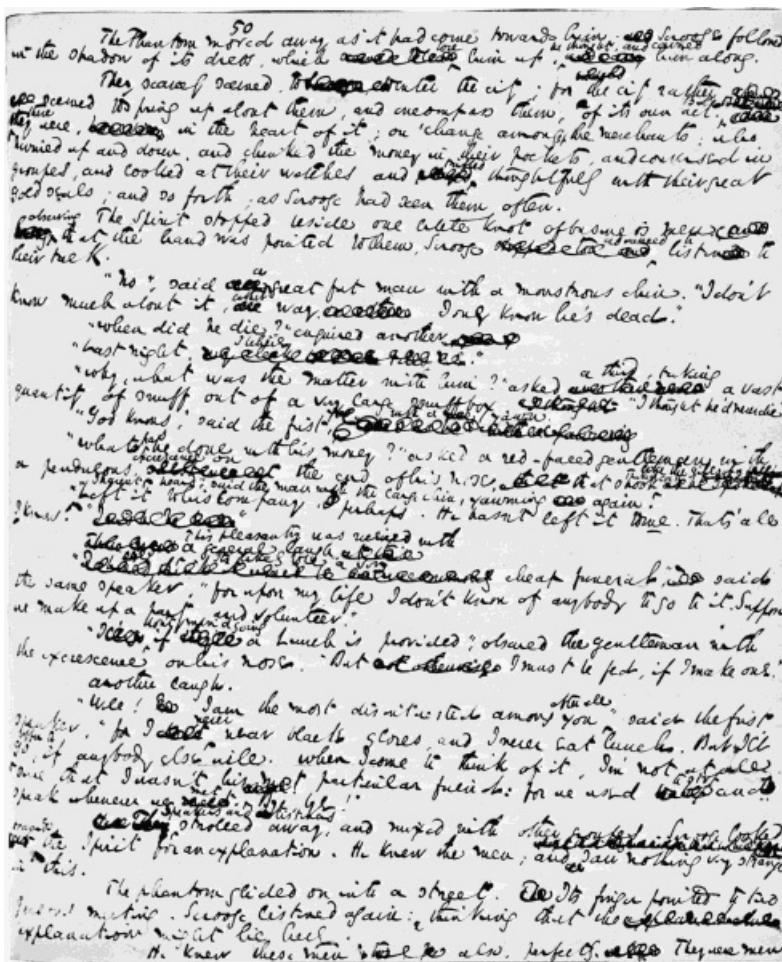 50
The Phantom moved away as it had come towards him. Scrooge followed
in the shadow of its dress, which bore him up, he thought, and carried him along.
They scarcely seemed to enter the city; for the city rather
seemed to spring up about them, and encompass them, of its own act. But there
they were, in the heart of it; on 'Change, among the merchants; who
hurried up and down, and chinked the money in their pockets, and conversed in
groupes, and looked at their watches and trifled thoughtfully with their great
gold seals; and so forth, as Scrooge had seen them often.
The Spirit stopped beside one little knot of business men.
observing that the hand was pointed to them, Scrooge advanced to listen to
their talk.
"No", said a great fat man with a monstrous chin. "I don't
know much about it, either way. I only know he's dead."
"When did he die?" enquired another
"Last night, I believe."
"Why, what was the matter with him?" asked a third, taking a vast
quantity of snuff out of a very large snuff box. "I thought he'd never die
"God knows", said the first, with a yawn.
"What has he done with his money?" asked a red-faced gentleman with
a pendulous excrescence on the end of his nose, that shook like the gills of a
"I haven't heard", said the man with the large chin, yawning again.
"Left it to his Company, perhaps. He hasn't left it to me. That's all
I know."
This pleasantry was received with
a general laugh
"It's likely to be a very cheap funeral" said
the same speaker, "for upon my life I don't know of anybody to go to it. Suppose
we make up a party and volunteer."
"I don't mind going if a lunch is provided", observed the gentleman with
the excrescence on his nose. "But I must be fed, if I make one."
another laugh.
"Well! I am the most disinterested among you after all" said the first
speaker, "for I never wear black gloves, and I never eat lunch. But I'll
offer to go, if anybody else will. When I come to think of it, I'm not at all
sure that I wasn't his most particular friend: for we used to stop and
speak whenever we met. Bye bye!"
Speakers and listeners strolled away, and mixed with other groupes. Scrooge looked
towards the Spirit for an explanation. He knew the men; and saw nothing very strange
in this.
The phantom glided on into a street. Its finger pointed to two
persons meeting. Scrooge listened again: thinking that the
explanation might lie here.
He knew these men also, perfectly. They were men